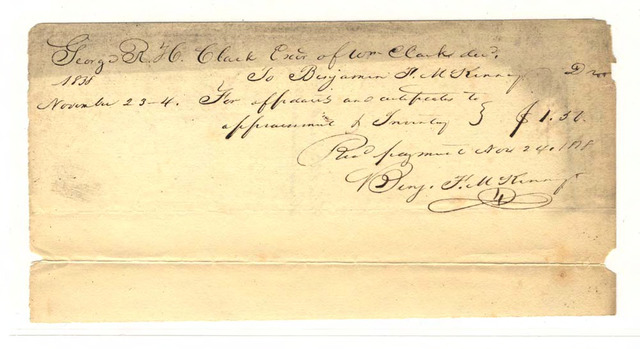 George R. H. Clark Exor of Wm Clarks decd.
1838 To Benjamin F. McKenney Dr
November 23-4. For affidavits and certificates to
appraisement & Inventory } $1.50
Recd payment Nov 24. 1838
Benj. F. McKenney